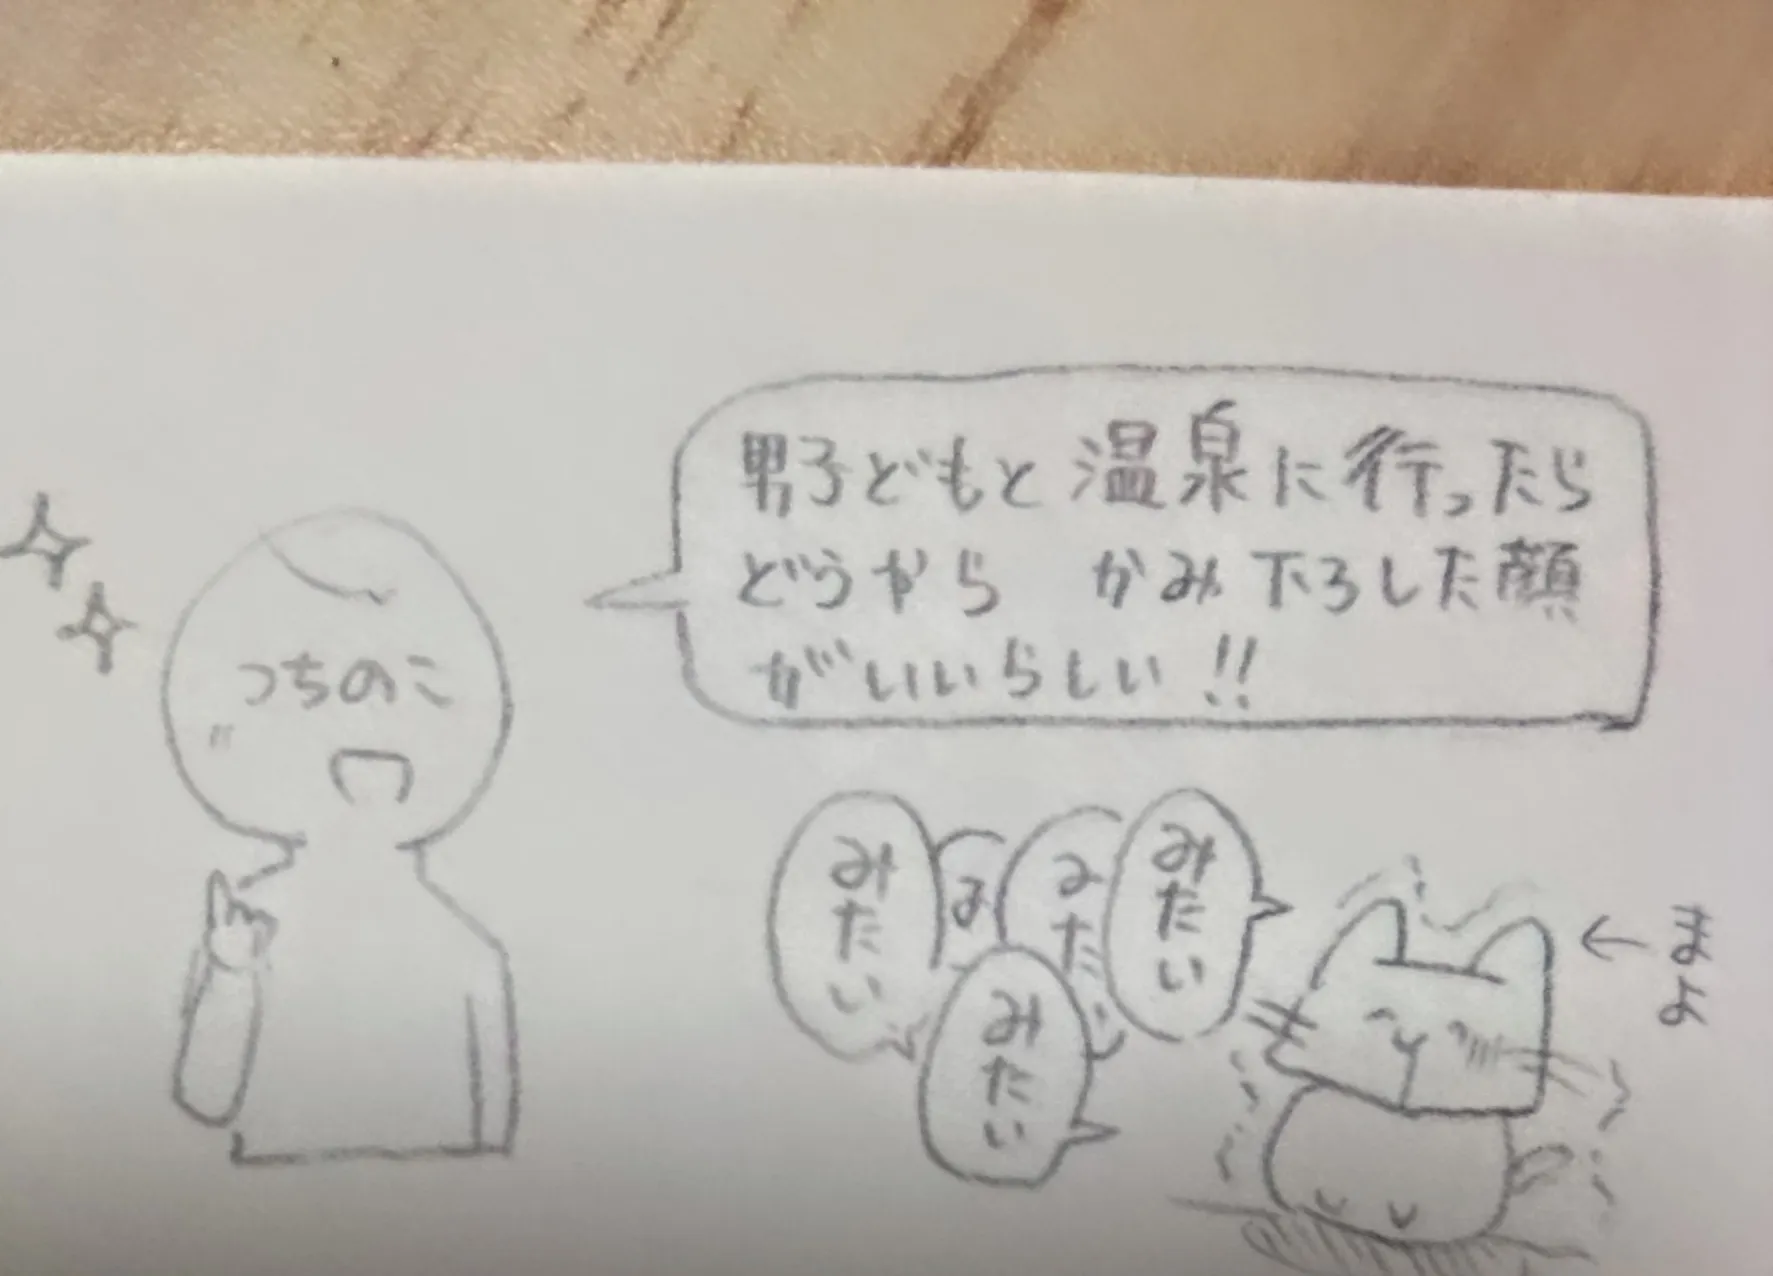 男子どもと温泉に行ったら
どうやら かみ下ろした顔
がいいらしい!!
つちのこ
みたい
み
みた
みたい
みたい
まよ